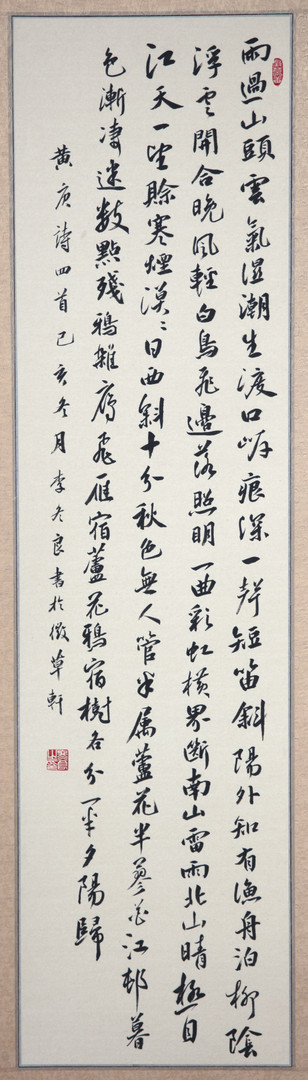 雨過山頭雲氣濕潮生渡口岸痕深一聲短笛斜陽外知有漁舟泊柳陰
浮云開合晚風輕白鳥飛邊落照明一曲彩虹橫界斷南山雷雨北山晴極目
江天一望賒寒煙漠〻日西斜十分秋色無人管半属蘆花半蓼花江邨暮
色漸凄迷數點殘鴉雜鴈飛雁宿蘆花鴉宿樹各分一半夕陽歸
黃庚詩四首己亥冬月李冬良書於微草軒